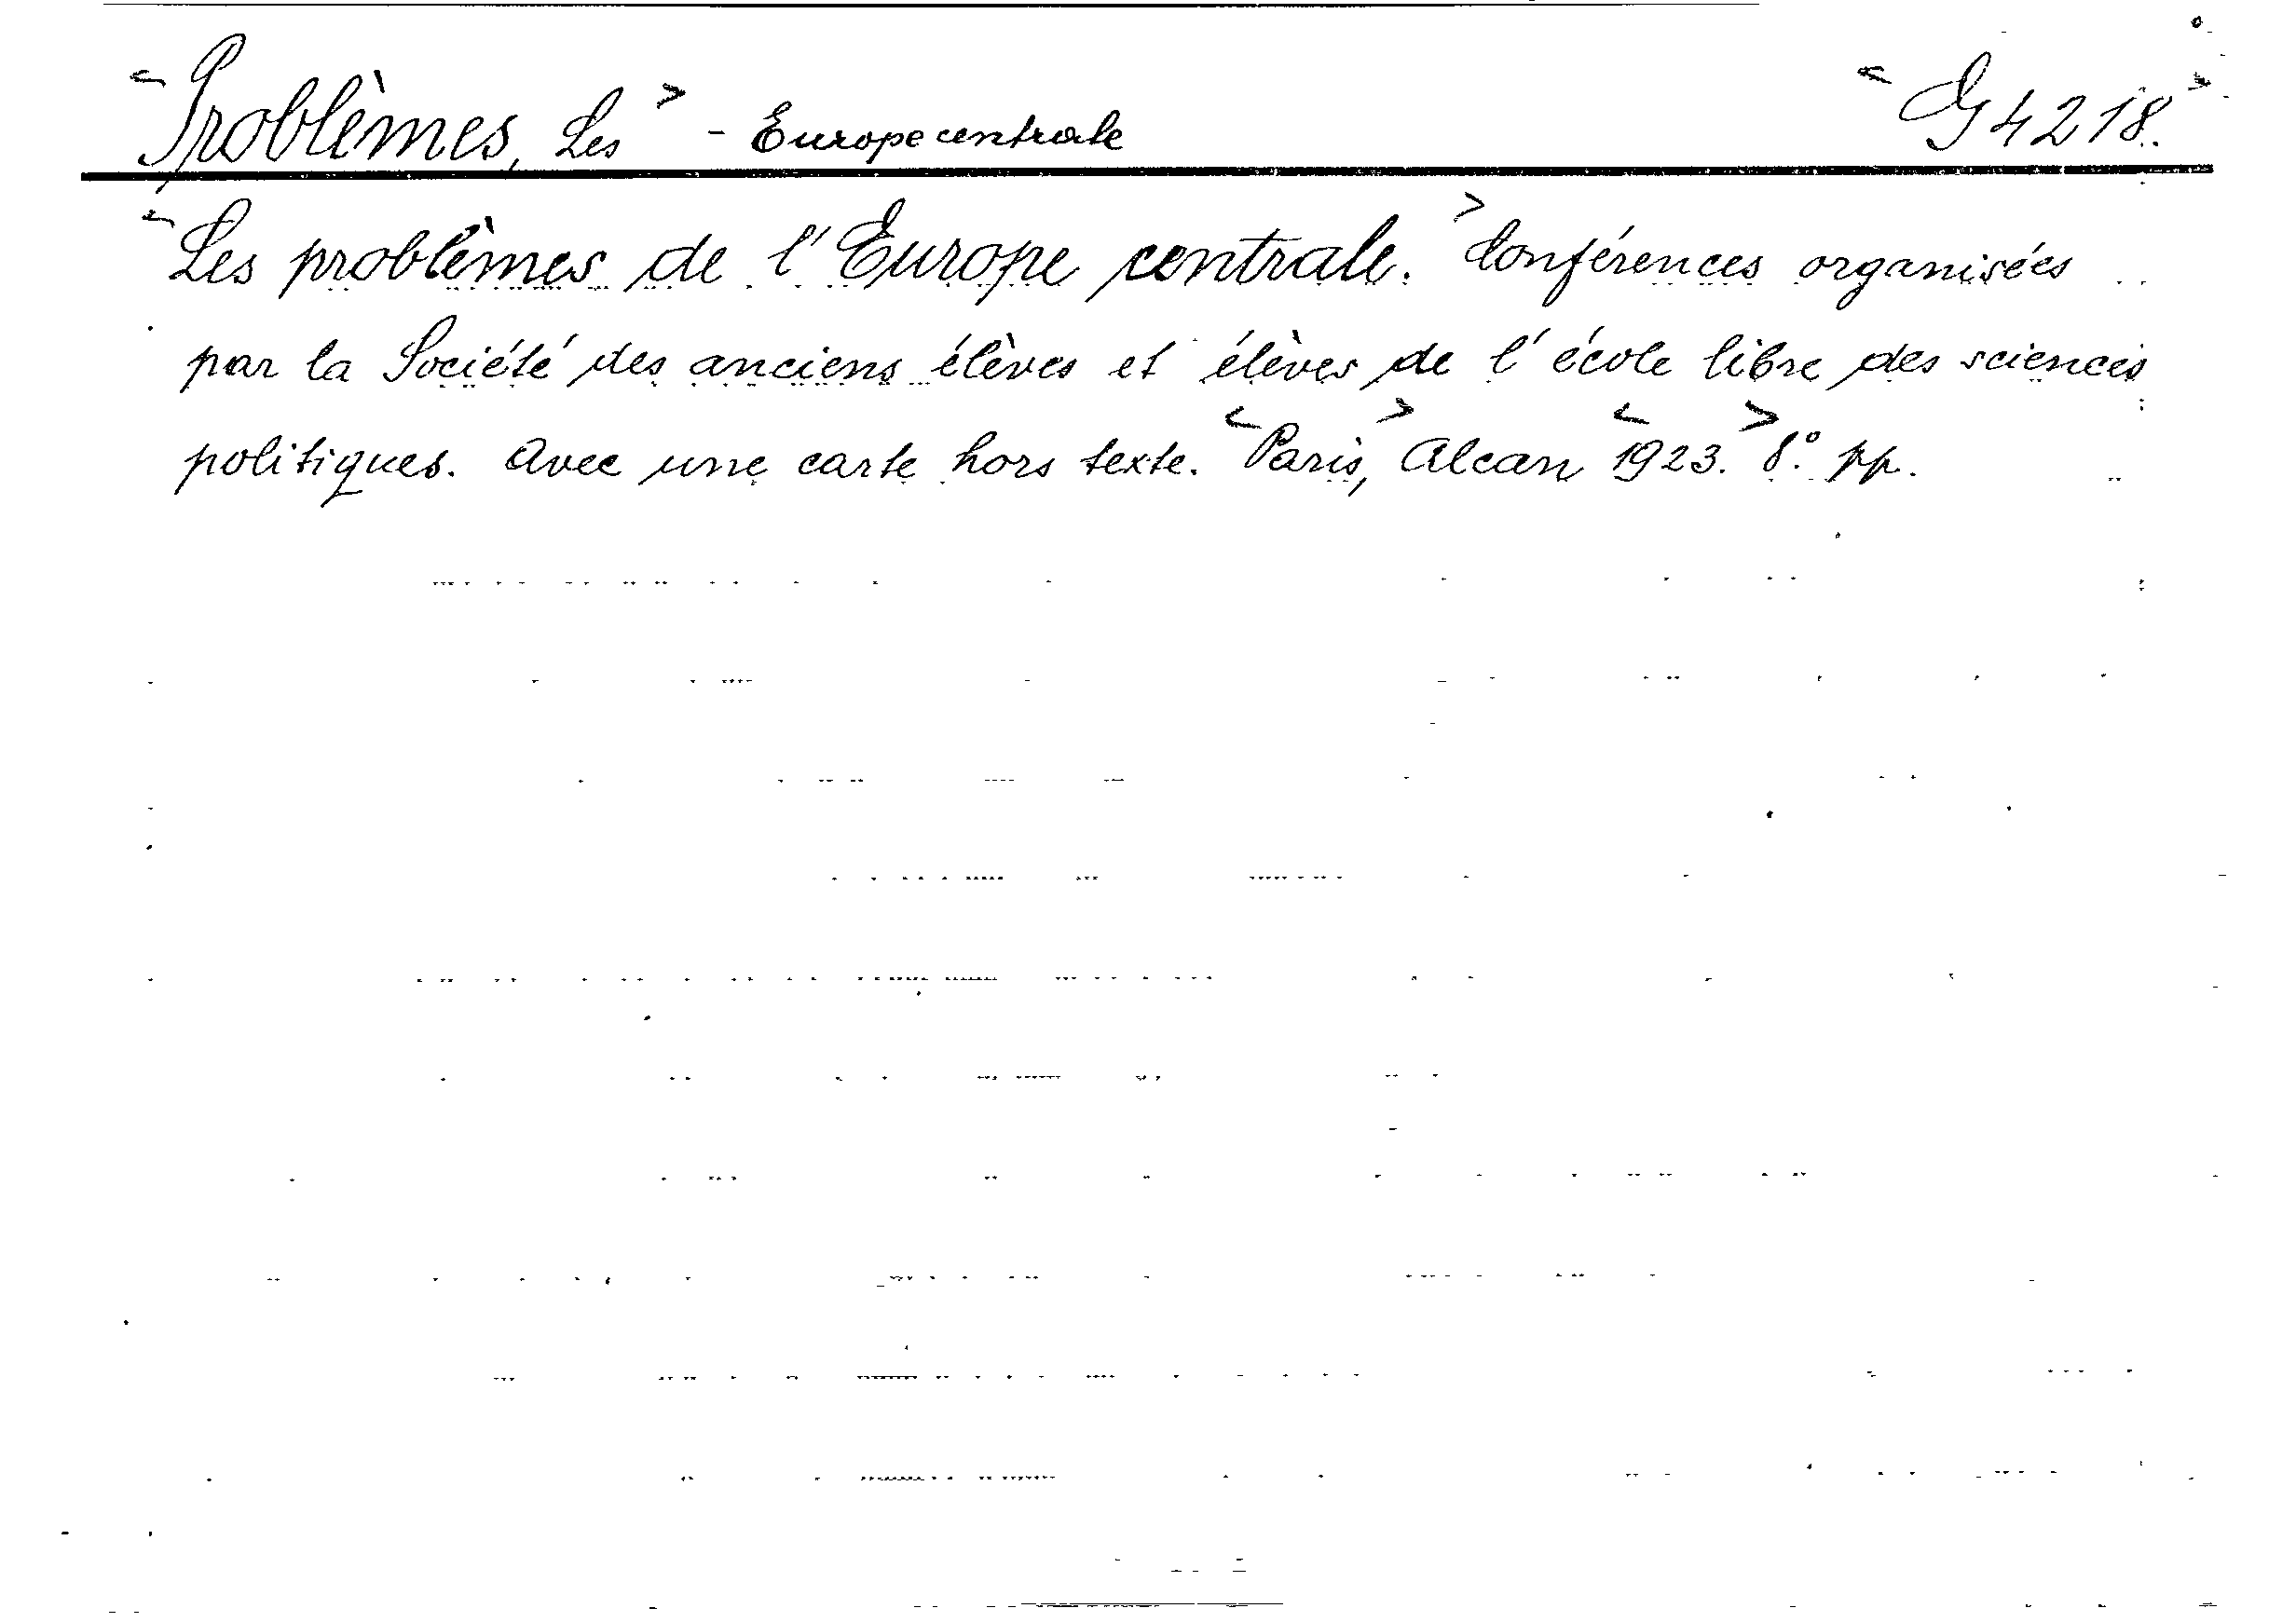 <Problèmes, Les> - Europe centrale <G 4218.>
<Les problèmes de l'Europe centrale.> Conférences organisées
par la Société des anciens élèves et élèves de l'école libre des sciences
politiques. Avec une carte hors texte. <Paris,> Alcan <1923.> 8.° pp.